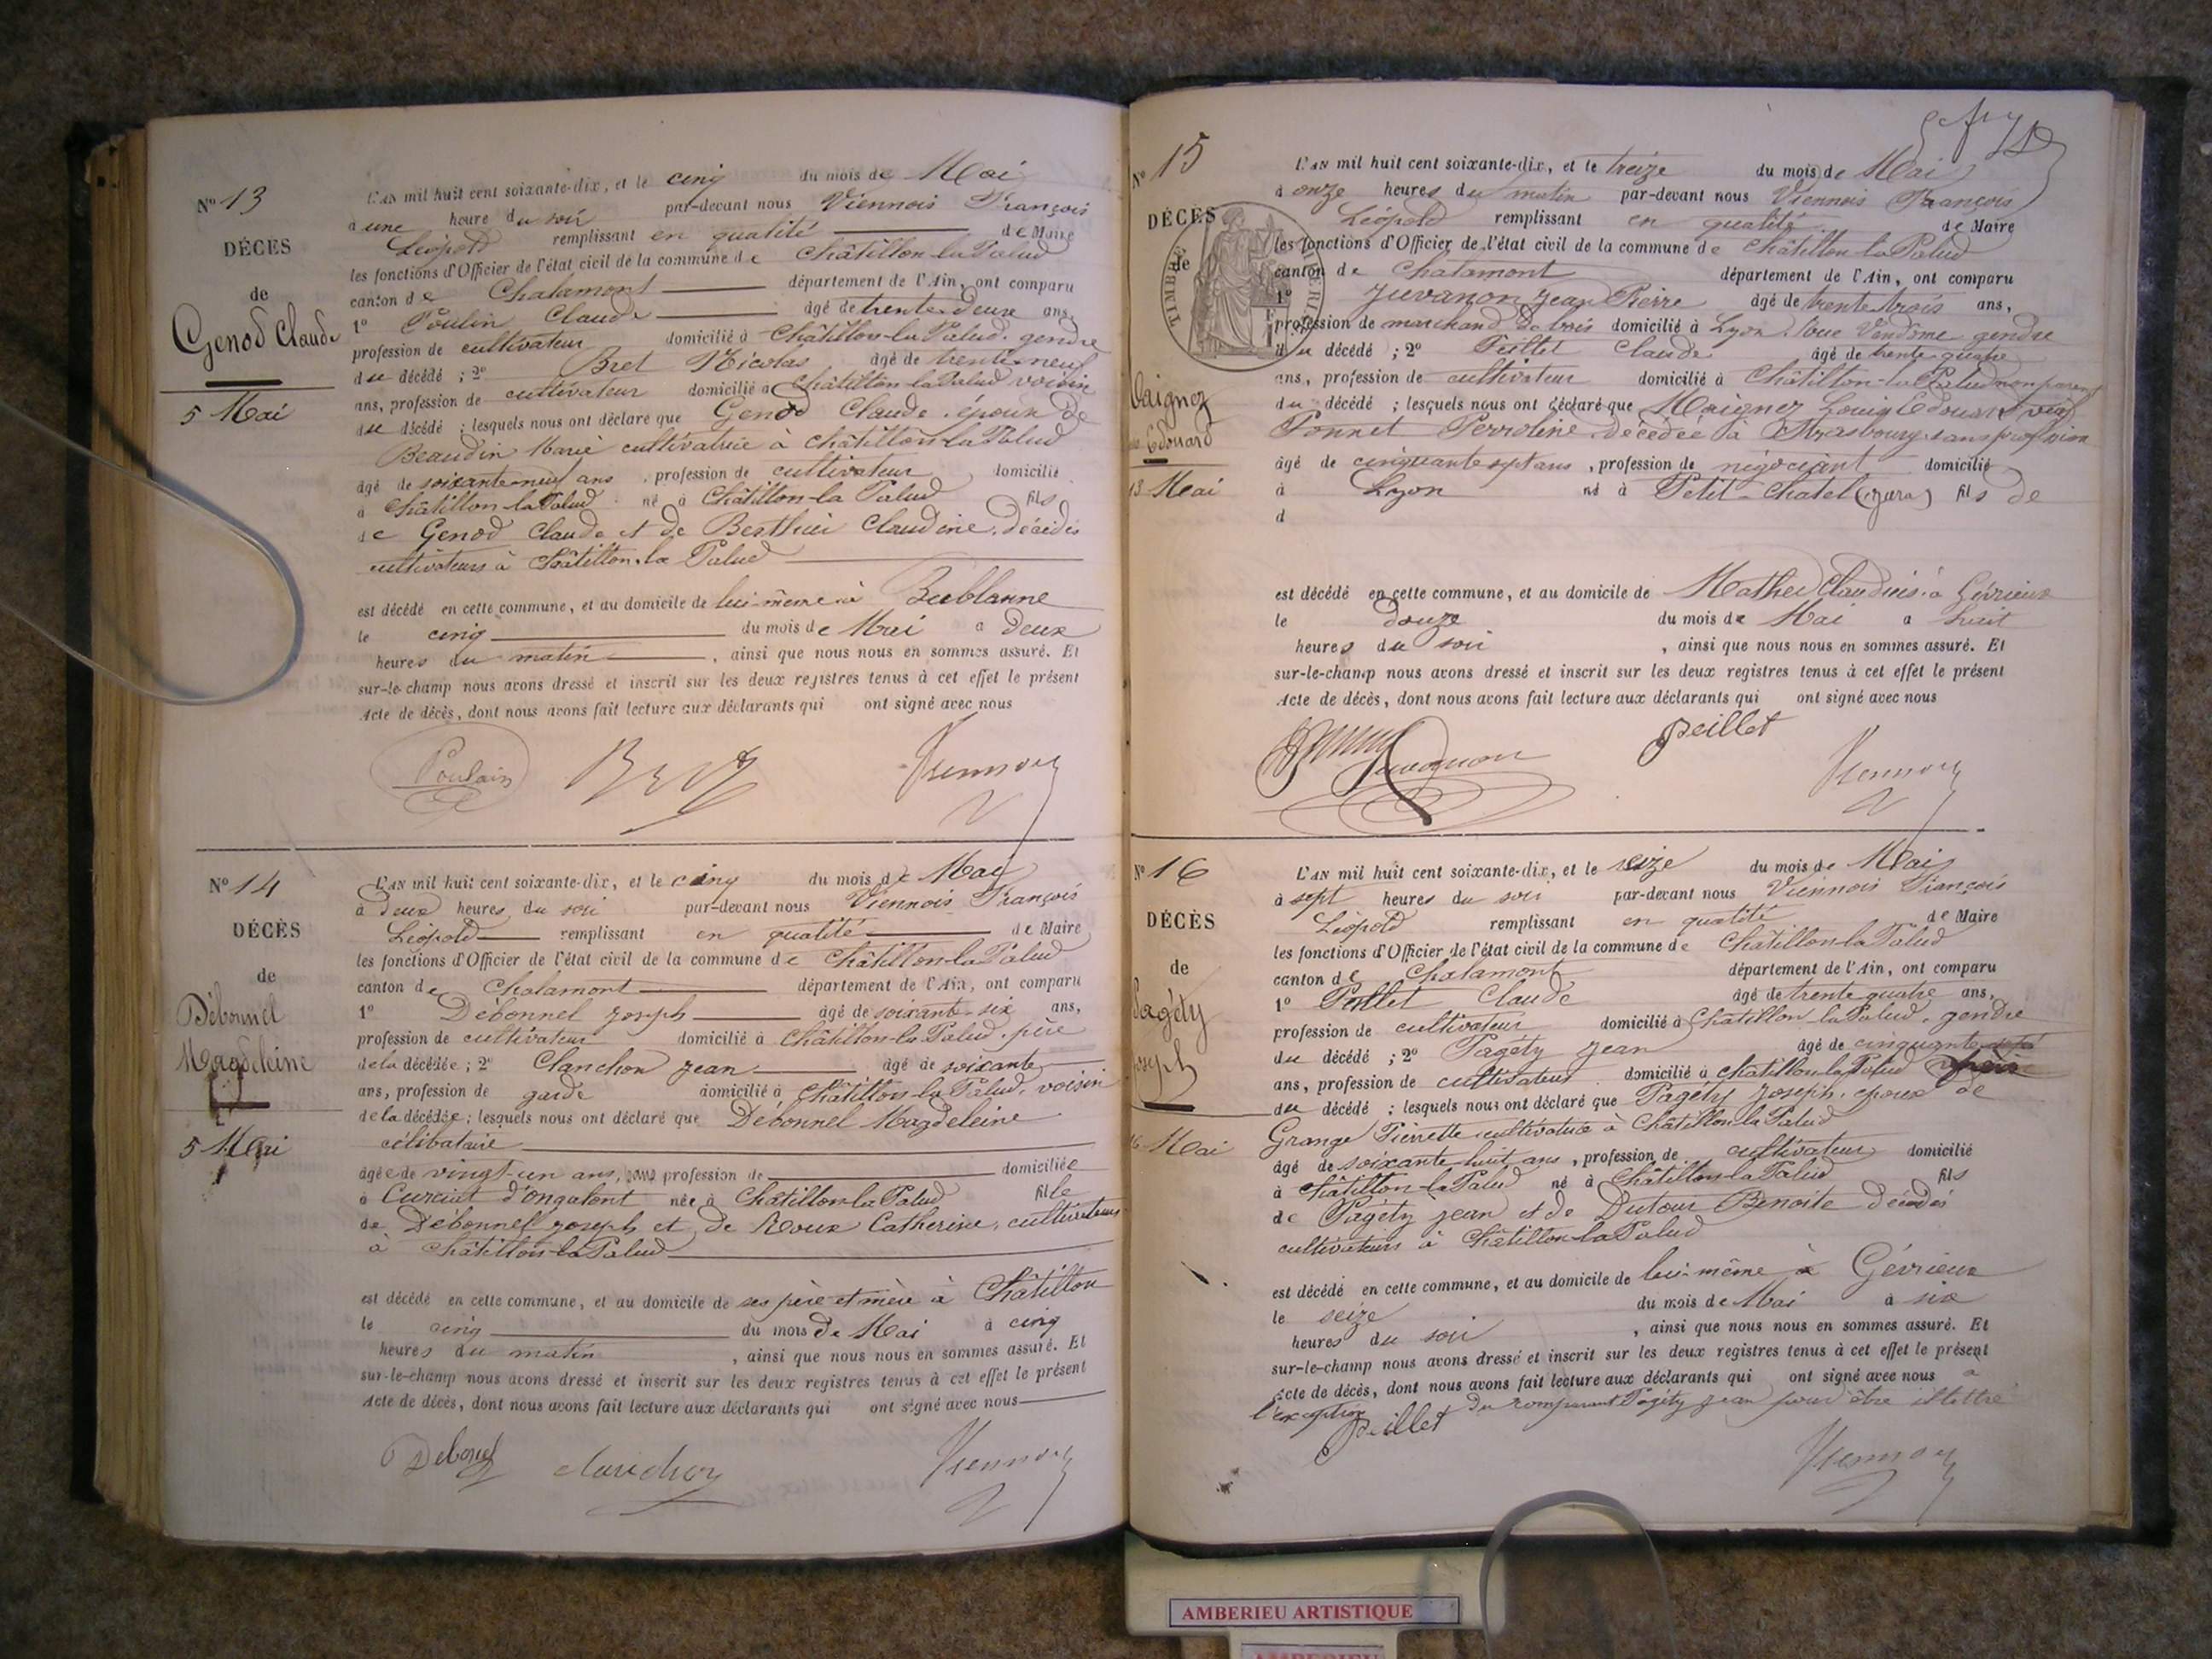 Nº 13
DÉCÈS
de
Genod Claude
5 Mai
L'AN mil huit cent soixante-dix, et le cinq du mois de Mai
à une heure du soir par-devant nous Viennois François
Léopold remplissant en qualité de Maire
les fonctions d'Officier de l'état civil de la commune de Châtillon-la-Palud
canton de Chalamont département de l'Ain, ont comparu
1º Poulin Claude âgé de trente-deux ans,
profession de cultivateur domicilié à Châtillon-la-Palud, gendre
du décédé ; 2º Bret Nicolas âgé de trente-neuf
ans, profession de cultivateur domicilié à Châtillon-la-Palud voisin
du décédé ; lesquels nous ont déclaré que Genod Claude, époux de
Beaudin Marie cultivatrice à Châtillon-la-Palud
âgé de soixante-neuf ans, profession de cultivateur domicilié
à Châtillon-la-Palud né à Châtillon-la Palud fils
de Genod Claude et de Berthier Claudine, décédés
cultivateurs à Châtillon-la Palud
est décédé en cette commune, et au domicile de lui-même à Bublanne
le cinq du mois de Mai à deux
heures du matin, ainsi que nous nous en sommes assuré. Et
sur-le-champ nous avons dressé et inscrit sur les deux registres tenus à cet effet le présent
Acte de décès, dont nous avons fait lecture aux déclarants qui ont signé avec nous
Poulain Bret Viennois
Nº 14
DÉCÈS
de
Débonnel
Magdeleine
5 Mai
L'AN mil huit cent soixante-dix, et le cinq du mois de Mai
à deux heures du soir par-devant nous Viennois François
Léopold remplissant en qualité de Maire
les fonctions d'Officier de l'état civil de la commune de Châtillon-la-Palud
canton de Chalamont département de l'Ain, ont comparu
1º Débonnel Joseph âgé de soixante-six ans,
profession de cultivateur domicilié à Châtillon-la-Palud, père
de la décédée ; 2º Clanchon Jean âgé de soixante
ans, profession de garde domicilié à Châtillon-la-Palud, voisin
de la décédée ; lesquels nous ont déclaré que Débonnel Magdeleine
célibataire
âgée de vingt-un ans, sans profession de domiciliée
à Curciat d'ongalont née à Châtillon-la-Palud fille
de Débonnel Joseph et de Roux Catherine, cultivateurs
à Châtillon-la-Palud
est décédé en cette commune, et au domicile de ses père et mère à Châtillon
le cinq du mois de Mai à cinq
heures du matin, ainsi que nous nous en sommes assuré. Et
sur-le-champ nous avons dressé et inscrit sur les deux registres tenus à cet effet le présent
Acte de décès, dont nous avons fait lecture aux déclarants qui ont signé avec nous
Debonel Clanchon Viennois
Nº 15
DÉCÈS
de
TIMBRE
Maignez
Edouard
13 Mai
L'AN mil huit cent soixante-dix, et le treize du mois de Mai
à onze heures du matin par-devant nous Viennois François
Léopold remplissant en qualité de Maire
les fonctions d'Officier de l'état civil de la commune de Châtillon-la-Palud
canton de Chalamont département de l'Ain, ont comparu
1º Juvanon Jean Pierre âgé de trente-trois ans,
profession de marchand de bois domicilié à Lyon, rue Vendôme, gendre
du décédé ; 2º Peillet Claude âgé de trente-quatre
ans, profession de cultivateur domicilié à Châtillon-la-Palud non parent
du décédé ; lesquels nous ont déclaré que Maignez Louis Edouard veuf
Ponnet Perroline décédée à Strasbourg sans profession
âgé de cinquante-sept ans, profession de négociant domicilié
à Lyon né à Petit-Chatel (Jura) fils de
d
est décédé en cette commune, et au domicile de Mathei Claudius, à Gévrieux
le douze du mois de Mai à huit
heures du soir, ainsi que nous nous en sommes assuré. Et
sur-le-champ nous avons dressé et inscrit sur les deux registres tenus à cet effet le présent
Acte de décès, dont nous avons fait lecture aux déclarants qui ont signé avec nous
Juvanon peillet Viennois
Nº 16
DÉCÈS
de
Pagéty
Joseph
16 Mai
L'AN mil huit cent soixante-dix, et le seize du mois de Mai
à sept heures du soir par-devant nous Viennois François
Léopold remplissant en qualité de Maire
les fonctions d'Officier de l'état civil de la commune de Châtillon-la-Palud
canton de Chalamont département de l'Ain, ont comparu
1º Peillet Claude âgé de trente-quatre ans,
profession de cultivateur domicilié à Châtillon-la-Palud, gendre
du décédé ; 2º Pagéty Jean âgé de cinquante-sept
ans, profession de cultivateur domicilié à Châtillon-la-Palud
du décédé ; lesquels nous ont déclaré que Pagéty Joseph, époux de
Grange Pierrette cultivatrice à Châtillon-la-Palud
âgé de soixante-huit ans, profession de cultivateur domicilié
à Châtillon-la-Palud né à Châtillon-la-Palud fils
de Pagéty Jean et de Dutour Benoite décédés
cultivateurs à Châtillon-la-Palud
est décédé en cette commune, et au domicile de lui-même à Gévrieux
le seize du mois de Mai à six
heures du soir, ainsi que nous nous en sommes assuré. Et
sur-le-champ nous avons dressé et inscrit sur les deux registres tenus à cet effet le présent
Acte de décès, dont nous avons fait lecture aux déclarants qui ont signé avec nous à
l'exception du comparant Pagéty Jean pour être illettré
Peillet Viennois
AMBERIEU ARTISTIQUE
AMBERIEU